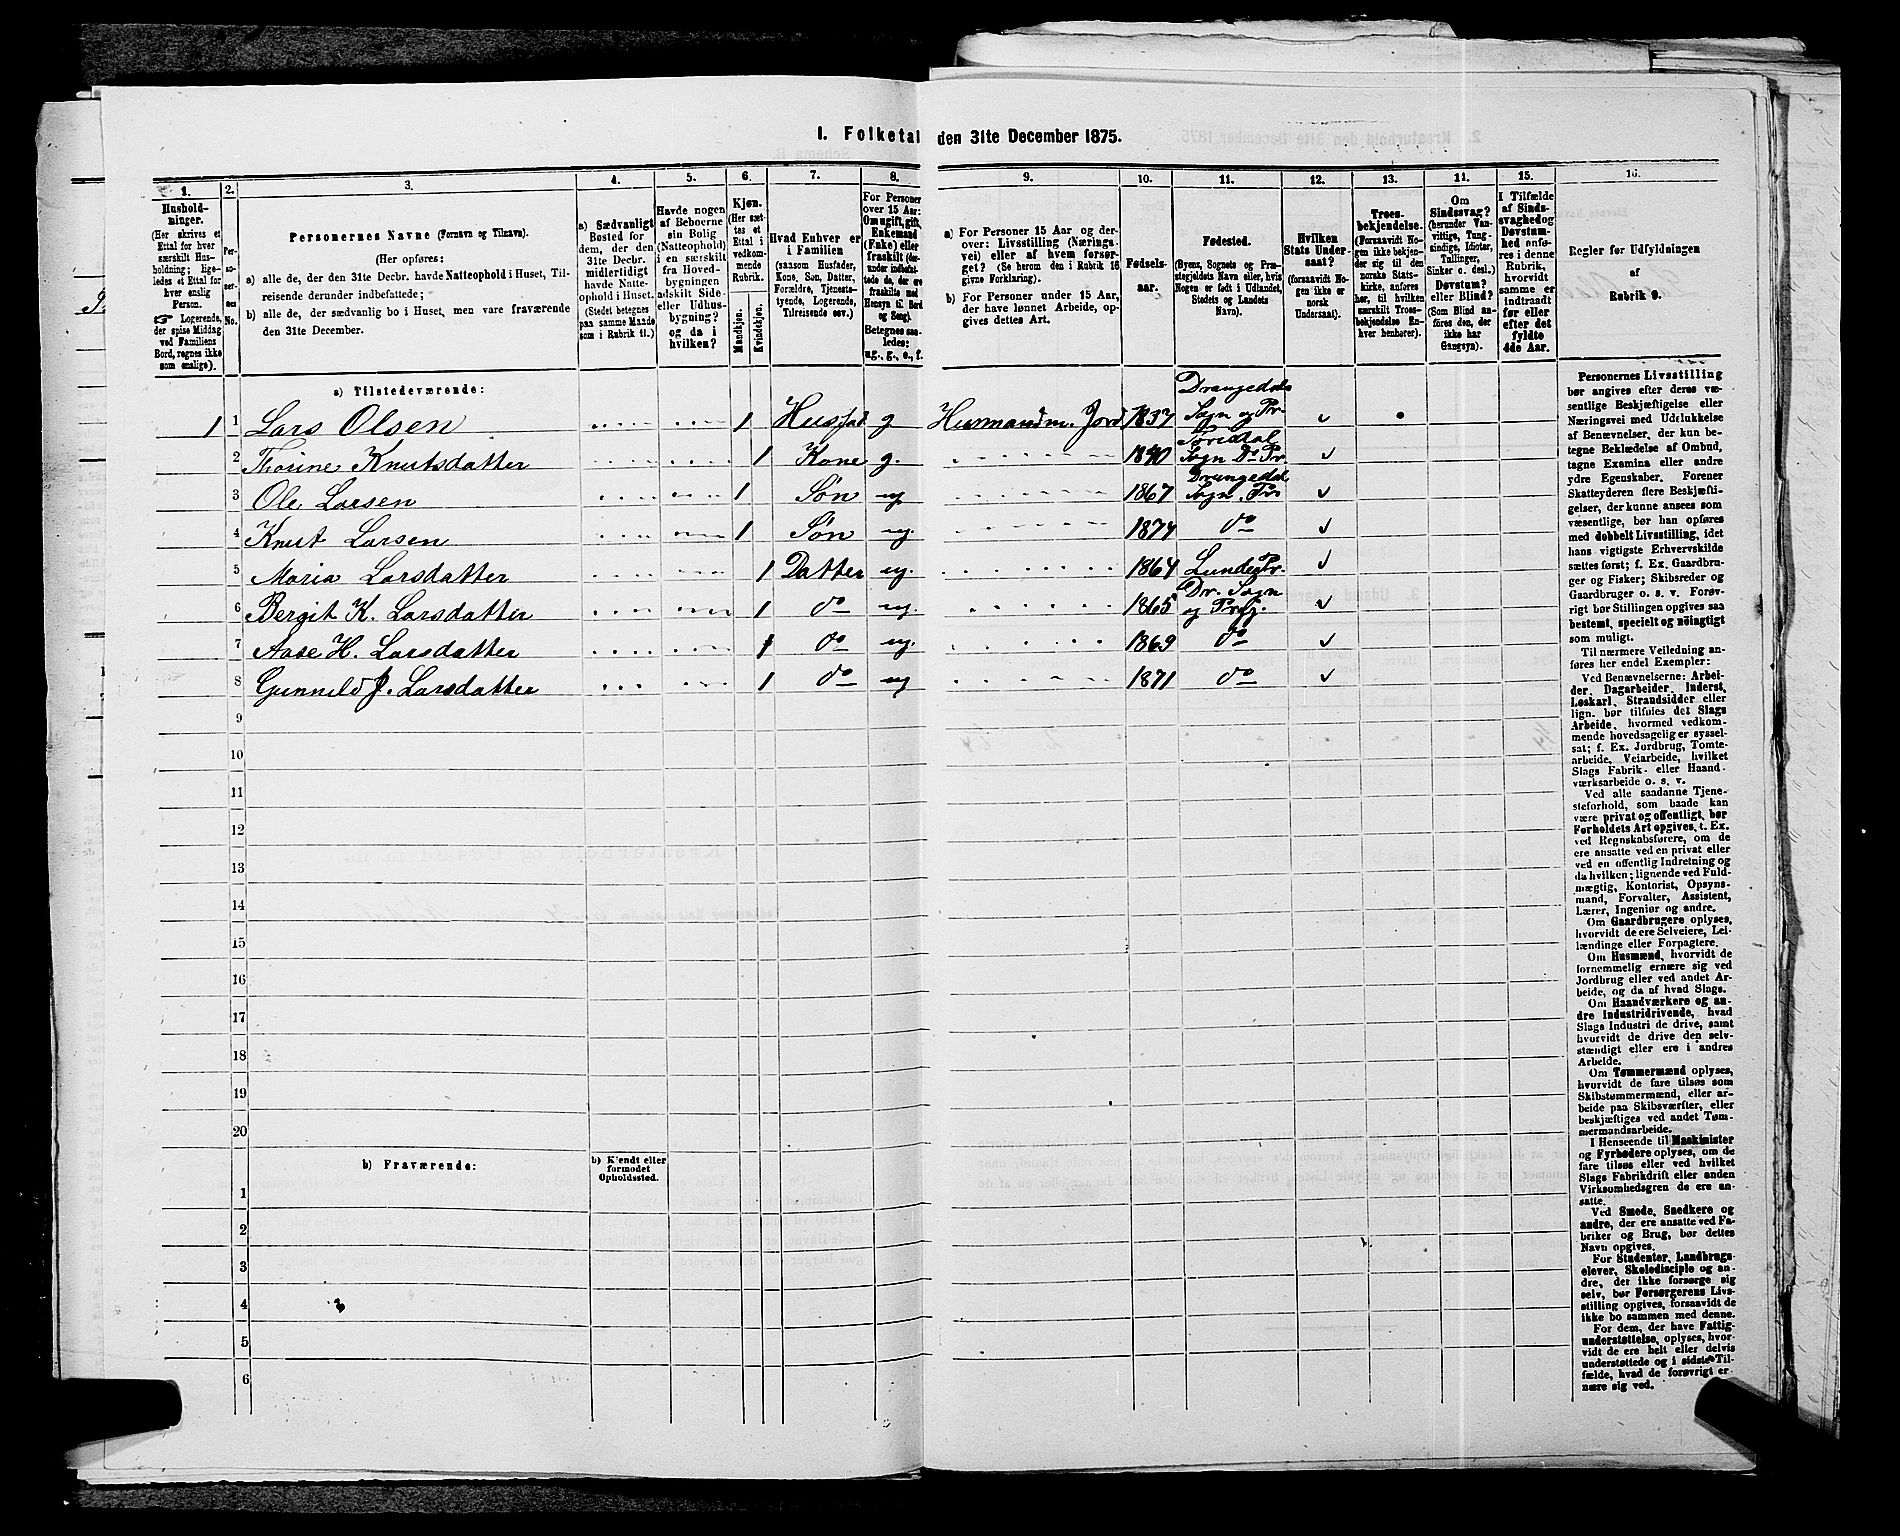 I. Folketal den 31te December 1875.
1.
Husholdninger.
(Her skrives et
Ettal for hver
særskilt Husholdning;
ligeledes et Ettal for
hver enslig
Person.
☞ Logerende,
der spise Middag
ved Familiens
Bord, regnes ikke
som enslige).
2.
Personernes
No.
3.
Personernes Navne (Fornavn og Tilnavn).
(Her opføres:
a) alle de, der den 31te Decbr. havde Natteophold i Huset, Tilreisende derunder indbefattede;
b) alle de, der sædvanlig bo i Huset, men vare fraværende
den 31te December.
4.
a) Sædvanligt
Bosted for
dem, der den
31te Decbr.
midlertidigt
havde Natteophold i Huset.
(Stedet betegnes
paa samme Maade
som i Rubrik 11.)
5.
Havde nogen
af Beboerne
sin Bolig
(Natteophold)
i en særskilt
fra Hovedbygningen
adskilt Side-
eller Udhusbygning?
og da i
hvilken?
6.
Kjøn.
(Her sættes et
Ettal i
vedkommende
Rubrik.)
Mandkjøn.
Kvindekjøn.
7.
Hvad Enhver er
i Familien
(saasom Husfader,
Kone, Søn, Datter,
Forældre, Tjenestetyende, Logerende,
Tilreisende osv.)
8.
For Personer
over 15 Aar:
Om ugift, gift,
Enkemand
(Enke) eller
fraskilt (derunder indbefattede de, der ere
fraskilte med
Hensyn til Bord
og Seng).
Betegnes saaledes:
ug., g., e., f.
9.
a) For Personer 15 Aar og derover: Livsstilling (Næringsvei) eller af hvem forsørget? (Se herom den i Rubrik 16
givne Forklaring).
b) For Personer under 15 Aar,
der have lønnet Arbeide, opgives dettes Art.
10.
Fødselsaar.
11.
Fødested.
(Byens, Sognets og Præstegjeldets Navn eller, hvis
Nogen er født i Udlandet,
Stedets og Landets
Navn).
12.
Hvilken
Stats Undersaat?
(forsaavidt Nogen ikke er
norsk
Undersaat).
13.
Troesbekjendelse.
(Forsaavidt Nogen ikke bekjender sig til den
norske Statskirke, anføres
her, til hvilken
særskilt Troesbekjendelse Enhver henhører).
14.
Om
Sindssvag?
(herunder Vanvittige, Tungsindige, Idioter,
Tullinger,
Sinker o. desl.)
Døvstum?
eller Blind?
(Som Blind anføres den, der
ikke har
Gangsyn).
15.
I Tilfælde
af Sindssvaghed og
Døvstumhed anføres i denne
Rubrik,
hvorvidt
samme er
indtraadt
før eller
efter det
fyldte
4de Aar.
16.
Regler for Udfyldningen
af
Rubrik 9.
a) Tilstedeværende:
1 1 Lars Olsen 1 Husfad. g Husmandm. Jord. 1837 Drangedals Sogn og Pr.
2 Thorine Knutsdatter 1 Kone g. 1840 Tørisdal Sogn Do Pr.
3 Ole Larsen 1 Søn ug 1867 Drangedal Sogn. Pr.
4 Knut Larsen 1 Søn ug. 1874 do
5 Maria Larsdatter 1 Datter ug. 1864 Lunde Pr.
6 Bergit K. Larsdatter 1 do ug. 1865 Dr. Sogn og Prfj.
7 Aase H. Larsdatter 1 do ug. 1869 do
8 Gunneld J. Larsdatter 1 do ug 1871 do
9
10
11
12
13
14
15
16
17
18
19
20
b) Fraværende: b) Kjendt eller
formodet
Opholdssted.
1
2
3
4
5
6
Personernes Livsstilling
bør angives efter deres væsentlige Beskjæftigelse eller
Næringsvei med Udelukkelse
af Benævnelser, der kun betegne Beklædelse af Ombud,
tagne Examina eller andre
ydre Egenskaber. Forener
Skatteyderen flere Beskjæftigelser, der kunne ansees som
væsentlige, bør han opføres
med dobbelt Livsstilling, idet
hans vigtigste Erhvervskilde
sættes først; f. Ex. Gaardbruger og Fisker; Skibsreder og
Gaardbruger o. s. v. Forøvrigt bør Stillingen opgives saa
bestemt, specielt og nöiagtigt
som muligt.
Til nærmere Veiledning anføres her endel Exempler:
Ved Benævnelserne: Arbeider, Dagarbeider, Inderst,
Løskarl, Strandsidder eller
lign. bør tilføies det Slags
Arbeide, hvormed vedkommende hovedsagelig er sysselsat; f. Ex. Jordbrug, Tomtearbeide, Veiarbeide, hvilket
Slags Fabrik- eller Haandværksarbeide o. s. v.
Ved alle saadanne Tjenesteforhold, som baade kan
være privat og offentligt, bør
Forholdets Art opgives, t. Ex.
ved Regnskabsførere, om de
ere ansatte ved en privat eller
ved en offentlig Indretning og
da hvilken; lignende ved Fuldmægtig, Kontorist, Opsynsmand, Forvalter, Assistent,
Lærer, Ingeniør og andre.
Om Gaardbrugere oplyses,
hvorvidt de ere Selveiere, Leilændinge eller Forpagtere.
Om Husmænd, hvorvidt de
fornemmelig ernære sig ved
Jordbrug eller ved andet Arbeide, og da af hvad Slags.
Om Haandværkere og andre Industridrivende, hvad
Slags Industri de drive, samt
hvorvidt de drive den selvstændigt eller ere i andres
Arbeide.
Om Tømmermænd oplyses,
hvorvidt de fare tilsøs som
Skibstømmermænd, eller arbeide paa Skibsværfter, eller
beskjæftiges ved andet Tømmermandsarbeide.
I Henseende til Maskinister
og Fyrbødere oplyses, om de
fare tilsøs eller ved hvilket
Slags Fabrikdrift eller anden
Virksomhedsgren de ere ansatte.
Ved Smede, Snedkere og
andre, der ere ansatte ved Fabriker og Brug, bør dettes
Navn opgives.
For Studenter, Landbrugselever, Skoledisciple og andre, der ikke forsørge sig
selv, bør Forsørgerens Livsstilling opgives, forsaavidt de
ikke bo sammen med denne.
For dem, der have Fattigunderstøttelse, oplyses, hvorvidt de ere helt eller delvis
understøttede og i sidste Tilfælde, hvad de forøvrigt ernære sig ved.